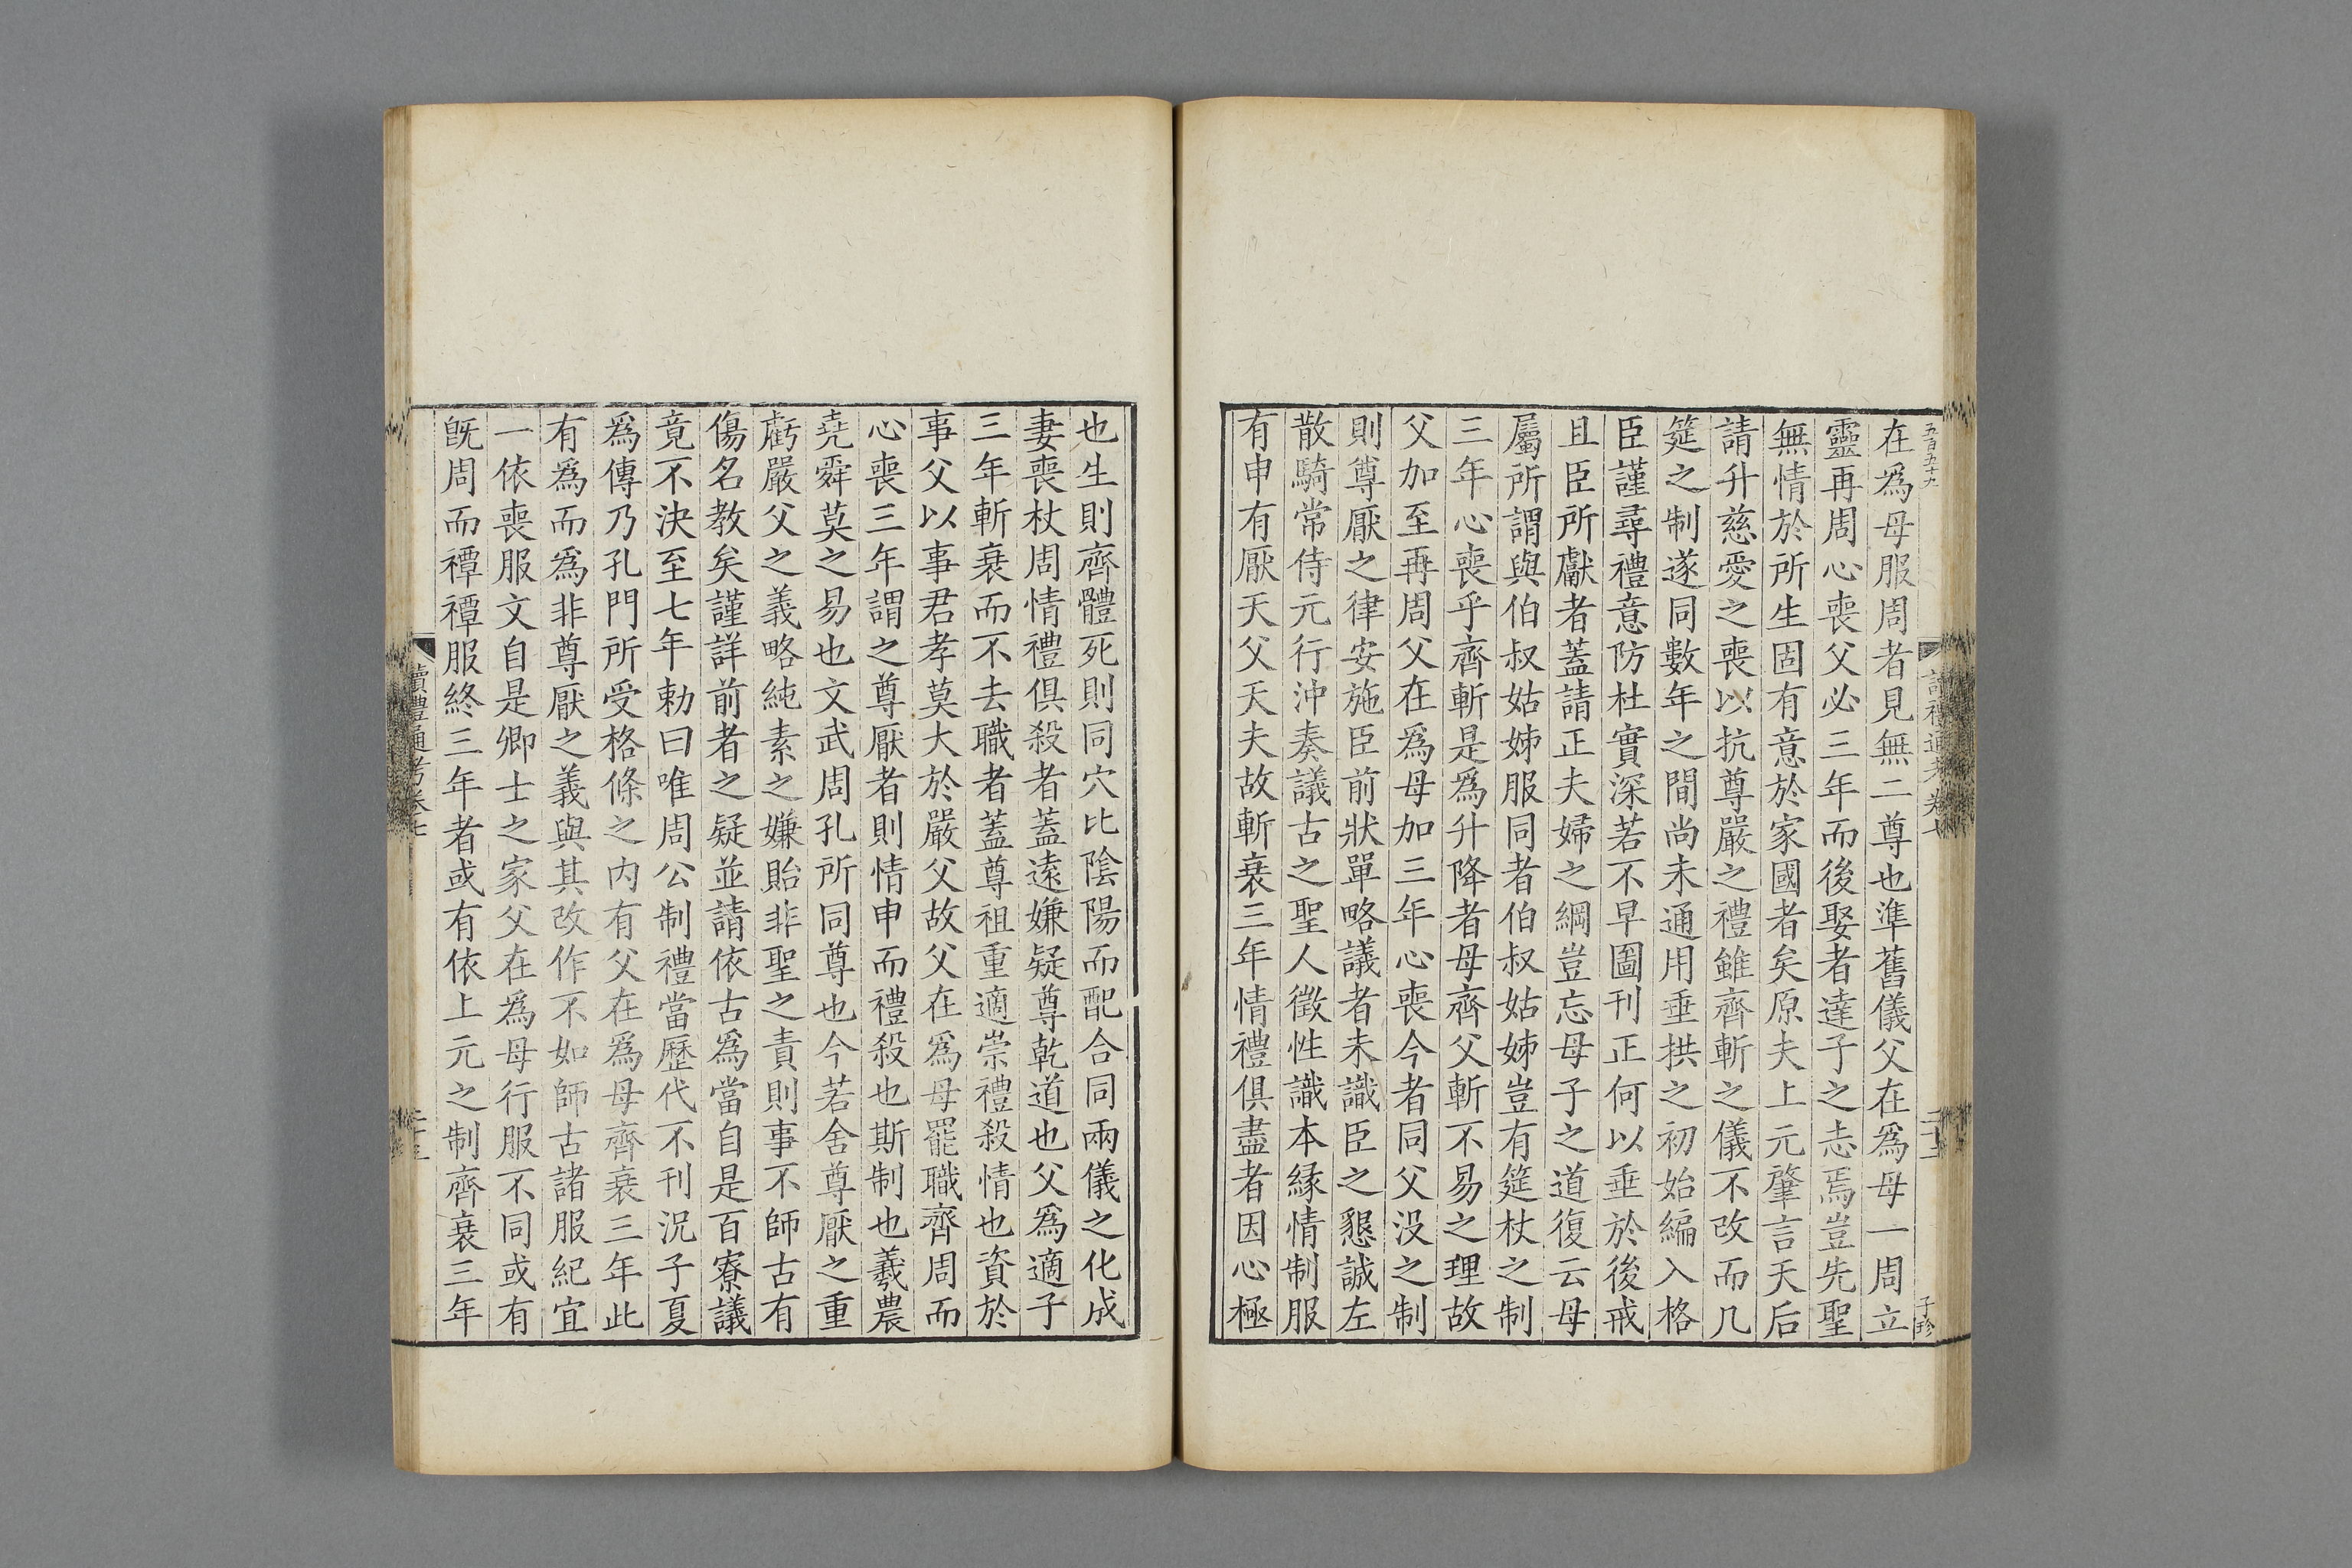 五百五十九
子珍
在爲母服周者見無二尊也準舊儀父在爲母一周立
靈再周心喪父必三年而後娶者達子之志焉豈先聖
無情於所生固有意於家國者矣原夫上元肇言天后
請升慈愛之喪以抗尊嚴之禮雖齊斬之儀不改而几
筵之制遂同數年之間尚未通用垂拱之初始編入格
臣謹尋禮意防杜實深若不早圖刊正何以垂於後戒
且臣所獻者蓋請正夫婦之綱豈忘母子之道復云母
屬所謂與伯叔姑姊服同者伯叔姑姊豈有筵杖之制
三年心喪乎齊斬是爲升降者母齊父斬不易之理故
父加至再周父在爲母加三年心喪今者同父没之制
則尊厭之律安施臣前狀單略議者未識臣之懇誠左
散騎常侍元行沖奏議古之聖人徵性識本緣情制服
有申有厭天父天夫故斬衰三年情禮俱盡者因心極
也生則齊體死則同穴比陰陽而配合同兩儀之化成
妻喪杖周情禮俱殺者蓋遠嫌疑尊乾道也父爲適子
三年斬衰而不去職者蓋尊祖重適崇禮殺情也資於
事父以事君孝莫大於嚴父故父在爲母罷職齊周而
心喪三年謂之尊厭者則情申而禮殺也斯制也羲農
堯舜莫之易也文武周孔所同尊也今若舍尊厭之重
虧嚴父之義略純素之嫌貽非聖之責則事不師古有
傷名教矣謹詳前者之疑並請依古爲當自是百寮議
竟不決至七年勅曰唯周公制禮當歷代不刊況子夏
爲傳乃孔門所受格條之内有父在爲母齊衰三年此
有爲而爲非尊厭之義與其改作不如師古諸服紀宜
一依喪服文自是卿士之家父在爲母行服不同或有
旣周而禫禫服終三年者或有依上元之制齊衰三年
讀禮通考卷七